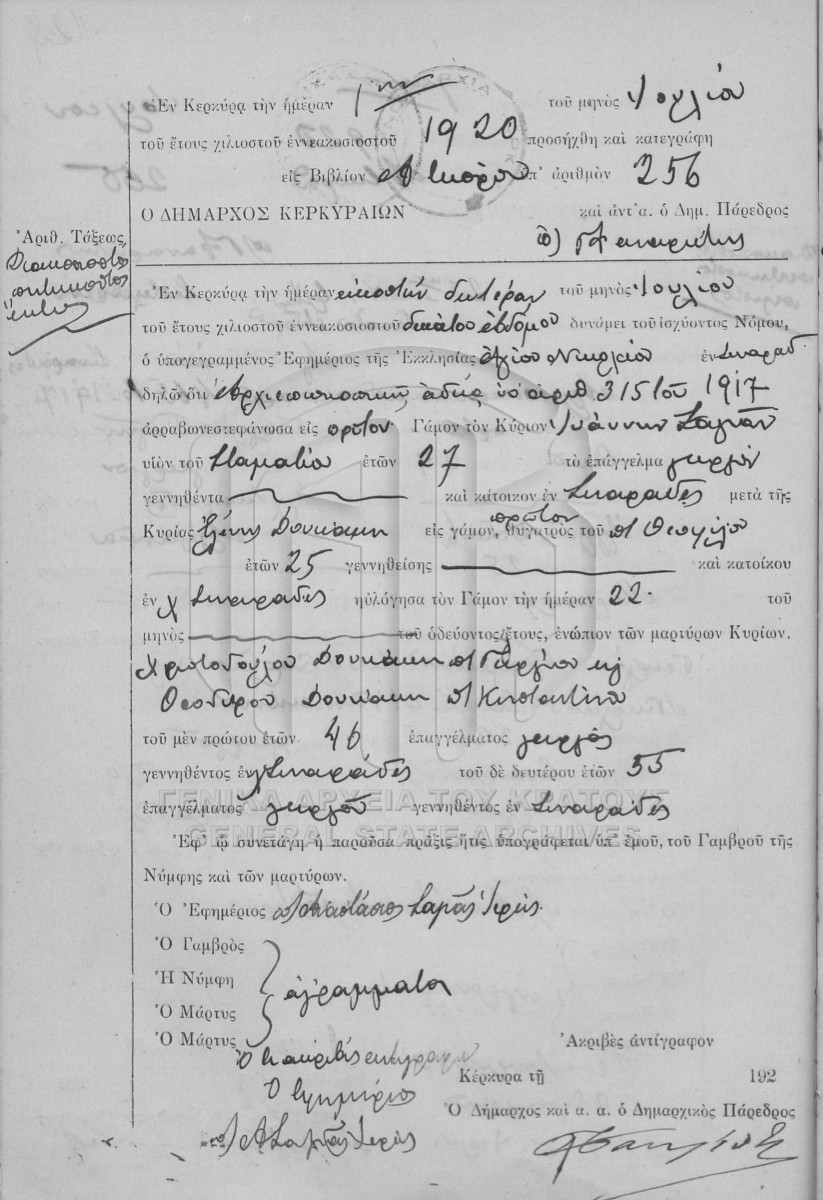 Ἐν Κερκύρᾳ τὴν ἡμέραν 1ην τοῦ μηνὸς Ἰουλίου
τοῦ ἔτους χιλιοστοῦ ἐννεακοσιοστοῦ 1920 προσήχθη καὶ κατεγράφη
εἰς Βιβλίον ὑπ' ἀριθμὸν 256
Ο ΔΗΜΑΡΧΟΣ ΚΕΡΚΥΡΑΙΩΝ καὶ ἀντ'α. ὁ Δημ. Πάρεδρος
Ἀριθ. Τάξεως,
Διακοσιοστὸς
πεντηκοστὸς
ἕκτος
Ἐν Κερκύρᾳ τὴν ἡμέραν εἰκοστὴν δευτέραν τοῦ μηνὸς Ἰουλίου
τοῦ ἔτους χιλιοστοῦ ἐννεακοσιοστοῦ δεκάτου ἑβδόμου δυνάμει τοῦ ἰσχύοντος Νόμου,
ὁ ὑπογεγραμμένος Ἐφημέριος τῆς Ἐκκλησίας Ἁγίου Νικολάου ἐν Σιναράδ.
δηλῶ ὅτι Ἀρχιεπισκοπικῇ ἀδείᾳ ὑπ' ἀριθ 315 τοῦ 1917
ἀρραβωνεστεφάνωσα εἰς πρῶτον Γάμον τὸν Κύριον Ἰωάννην
υἱὸν τοῦ Σταματίου ἐτῶν 27 τὸ ἐπάγγελμα γεωργὸν
γεννηθέντα καὶ κάτοικον ἐν Σιναράδες μετὰ τῆς
Κυρίας Ἑλένης Δουκάκη εἰς γάμον, πρῶτον θυγατρὸς τοῦ π Θεοφίλου
ἐτῶν 25 γεννηθείσης καὶ κατοίκου
ἐν χ Σιναράδες ηὐλόγησα τὸν Γάμον τὴν ἡμέραν 22. τοῦ
μηνὸς τοῦ ὁδεύοντος ἔτους, ἐνώπιον τῶν μαρτύρων Κυρίων.
Χριστοδούλου Δουκάκη π Γεωργίου κὶ
Θεοδώρου Δουκάκη π Κωνσταντίνου
τοῦ μὲν πρώτου ἐτῶν 46 ἐπαγγέλματος γεωργὸς
γεννηθέντος ἐν Σιναράδες τοῦ δὲ δευτέρου ἐτῶν 55
ΓΕΝΙΚΑ ΑΡΧΕΙΑ ΤΟΥ ΚΡΑΤΟΥΣ
ἐπαγγέλματος γεωργοῦ γεννηθέντος ἐν Σιναράδες
GENERAL STATE ARCHIVES
Ἐφ' ᾧ συνετάγη ἡ παροῦσα πρᾶξις ἥτις ὑπογράφεται ὑπ' ἐμοῦ, τοῦ Γαμβροῦ τῆς
Νύμφης καὶ τῶν μαρτύρων.
Ὁ Ἐφημέριος Ἀναστάσιος Σαμᾶς Ἱερεὺς
Ὁ Γαμβρὸς
Ἡ Νύμφη
ἀγράμματοι
Ὁ Μάρτυς
Ὁ Μάρτυς
Ἀκριβὲς ἀντίγραφον
Κέρκυρα τῇ 192
Ὁ ἐφημέριος
Ὁ Δήμαρχος καὶ α. α. ὁ Δημαρχικὸς Πάρεδρος
Α Σαμᾶς Ἱερεὺς